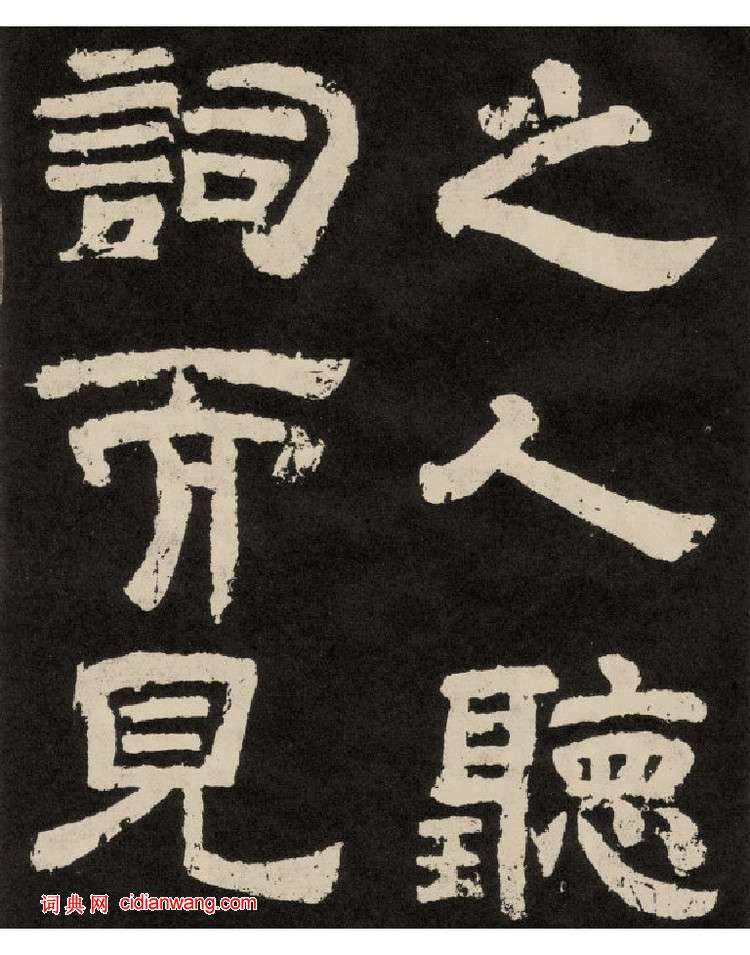 之人聽
詞而見
词典网 cidianwang.com